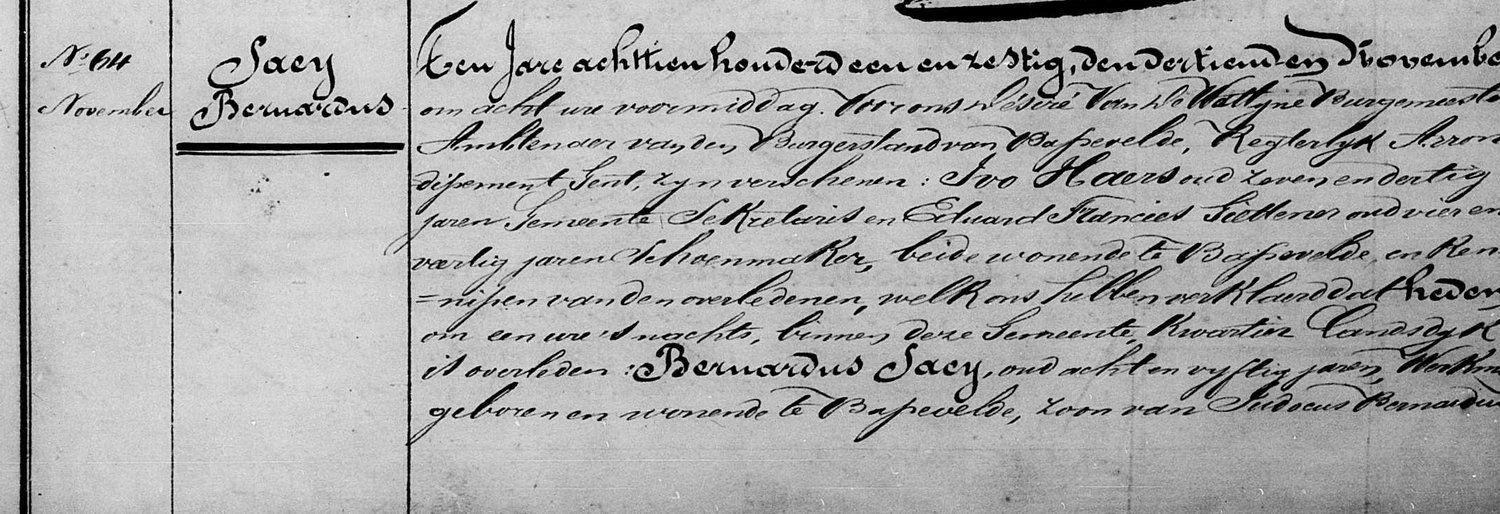 N.º 64
November
Saey
Bernardus
Ten Jare achttien honderd een en zestig, den dertienden Novembe
om acht ure voormiddag. Voor ons Désiré Van De Wattyne Burgemeeste
Ambtenaer van den Burgerstand van Bassevelde, Regterlyk Arron
dissement Gent, zyn verschenen: Ivo Haers oud zeven en dertig
jaren Gemeente Sekretaris en Eduard Francies oud vier en
veertig jaren Schoenmaker, beide wonende te Bassevelde, en Ken=
=nissen van den overledenen, welk ons hebben verklaerd dat heden
om een ure 's nachts, binnen deze Gemeente, Kwartier Landsdyk
is overleden: Bernardus Saey, oud acht en vyftig jaren, Werkm
geboren en wonende te Bassevelde, zoon van Judocus Bernardus